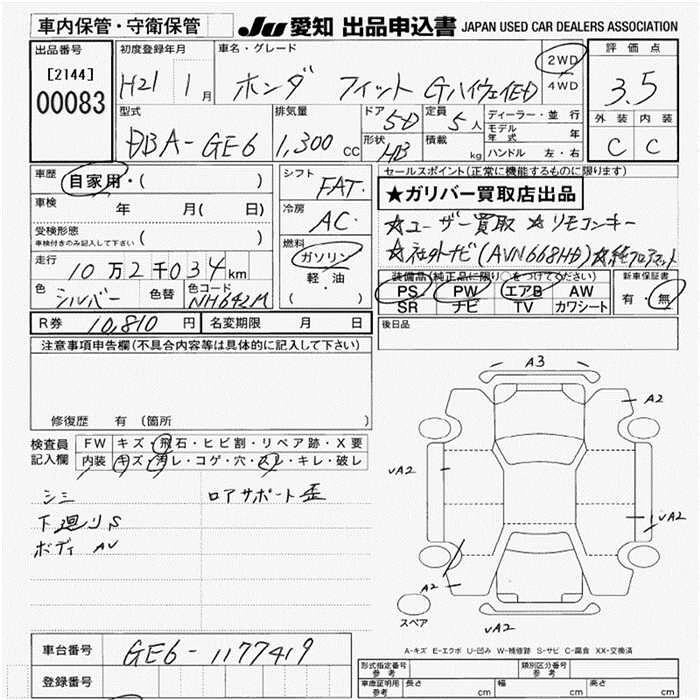 車内保管・守衛保管 JU 愛知 出品申込書 JAPAN USED CAR DEALERS ASSOCIATION
出品番号 初度登録年月 車名・グレード 2WD 評価点
[2144] H21 1月 ホンダ フィット Gハイウェイ 4WD 3.5
00083
型式 排気量 ドア 5D 定員 5人 ディーラー・並行 外装 内装
DBA-GE6 1,300 CC 形状 HB 積載 kg モデル年式 年 C C
ハンドル 左・右
車歴 自家用・( ) シフト FAT セールスポイント(正常に機能するものに限ります)
★ガリバー買取店出品
車検 年 月( 日) 冷房 AC
☆ユーザー買取 ☆リモコンキー
受検形態 ( )
車検付きのみ記入して下さい
燃料 ☆社外ナビ(AVN668HD) ☆純フロアマット
走行 10万2千034km ガソリン
軽・油
( ・ )
装備品(純正品に限り○をつけてください) 新車保証書
PS PW エアB AW 有・無
色 シルバー 色替 色コード NH642M
SR ナビ TV カワシート
R券 10,810円 名変期限 月 日 後日品
注意事項申告欄(不具合内容等は具体的に記入して下さい)
A3
A2
修復歴 有 (箇所 )
検査員記入欄 FW キズ・飛石・ヒビ割・リペア跡・X要
内装 キズ・汚レ・コゲ・穴・スレ・キレ・破レ
UA2
UA2
シミ ロアサポート歪
下廻りS
ボディ AU
A2
スペア
UA2
A-キズ E-エクボ U-凹み W-補修跡 S-サビ C-腐食 XX-交換済
車台番号 GE6-1177419
登録番号
型式指定番号 参考 類別区分番号 参考
車庫証明用 参考 長さ cm 幅 cm 高さ cm